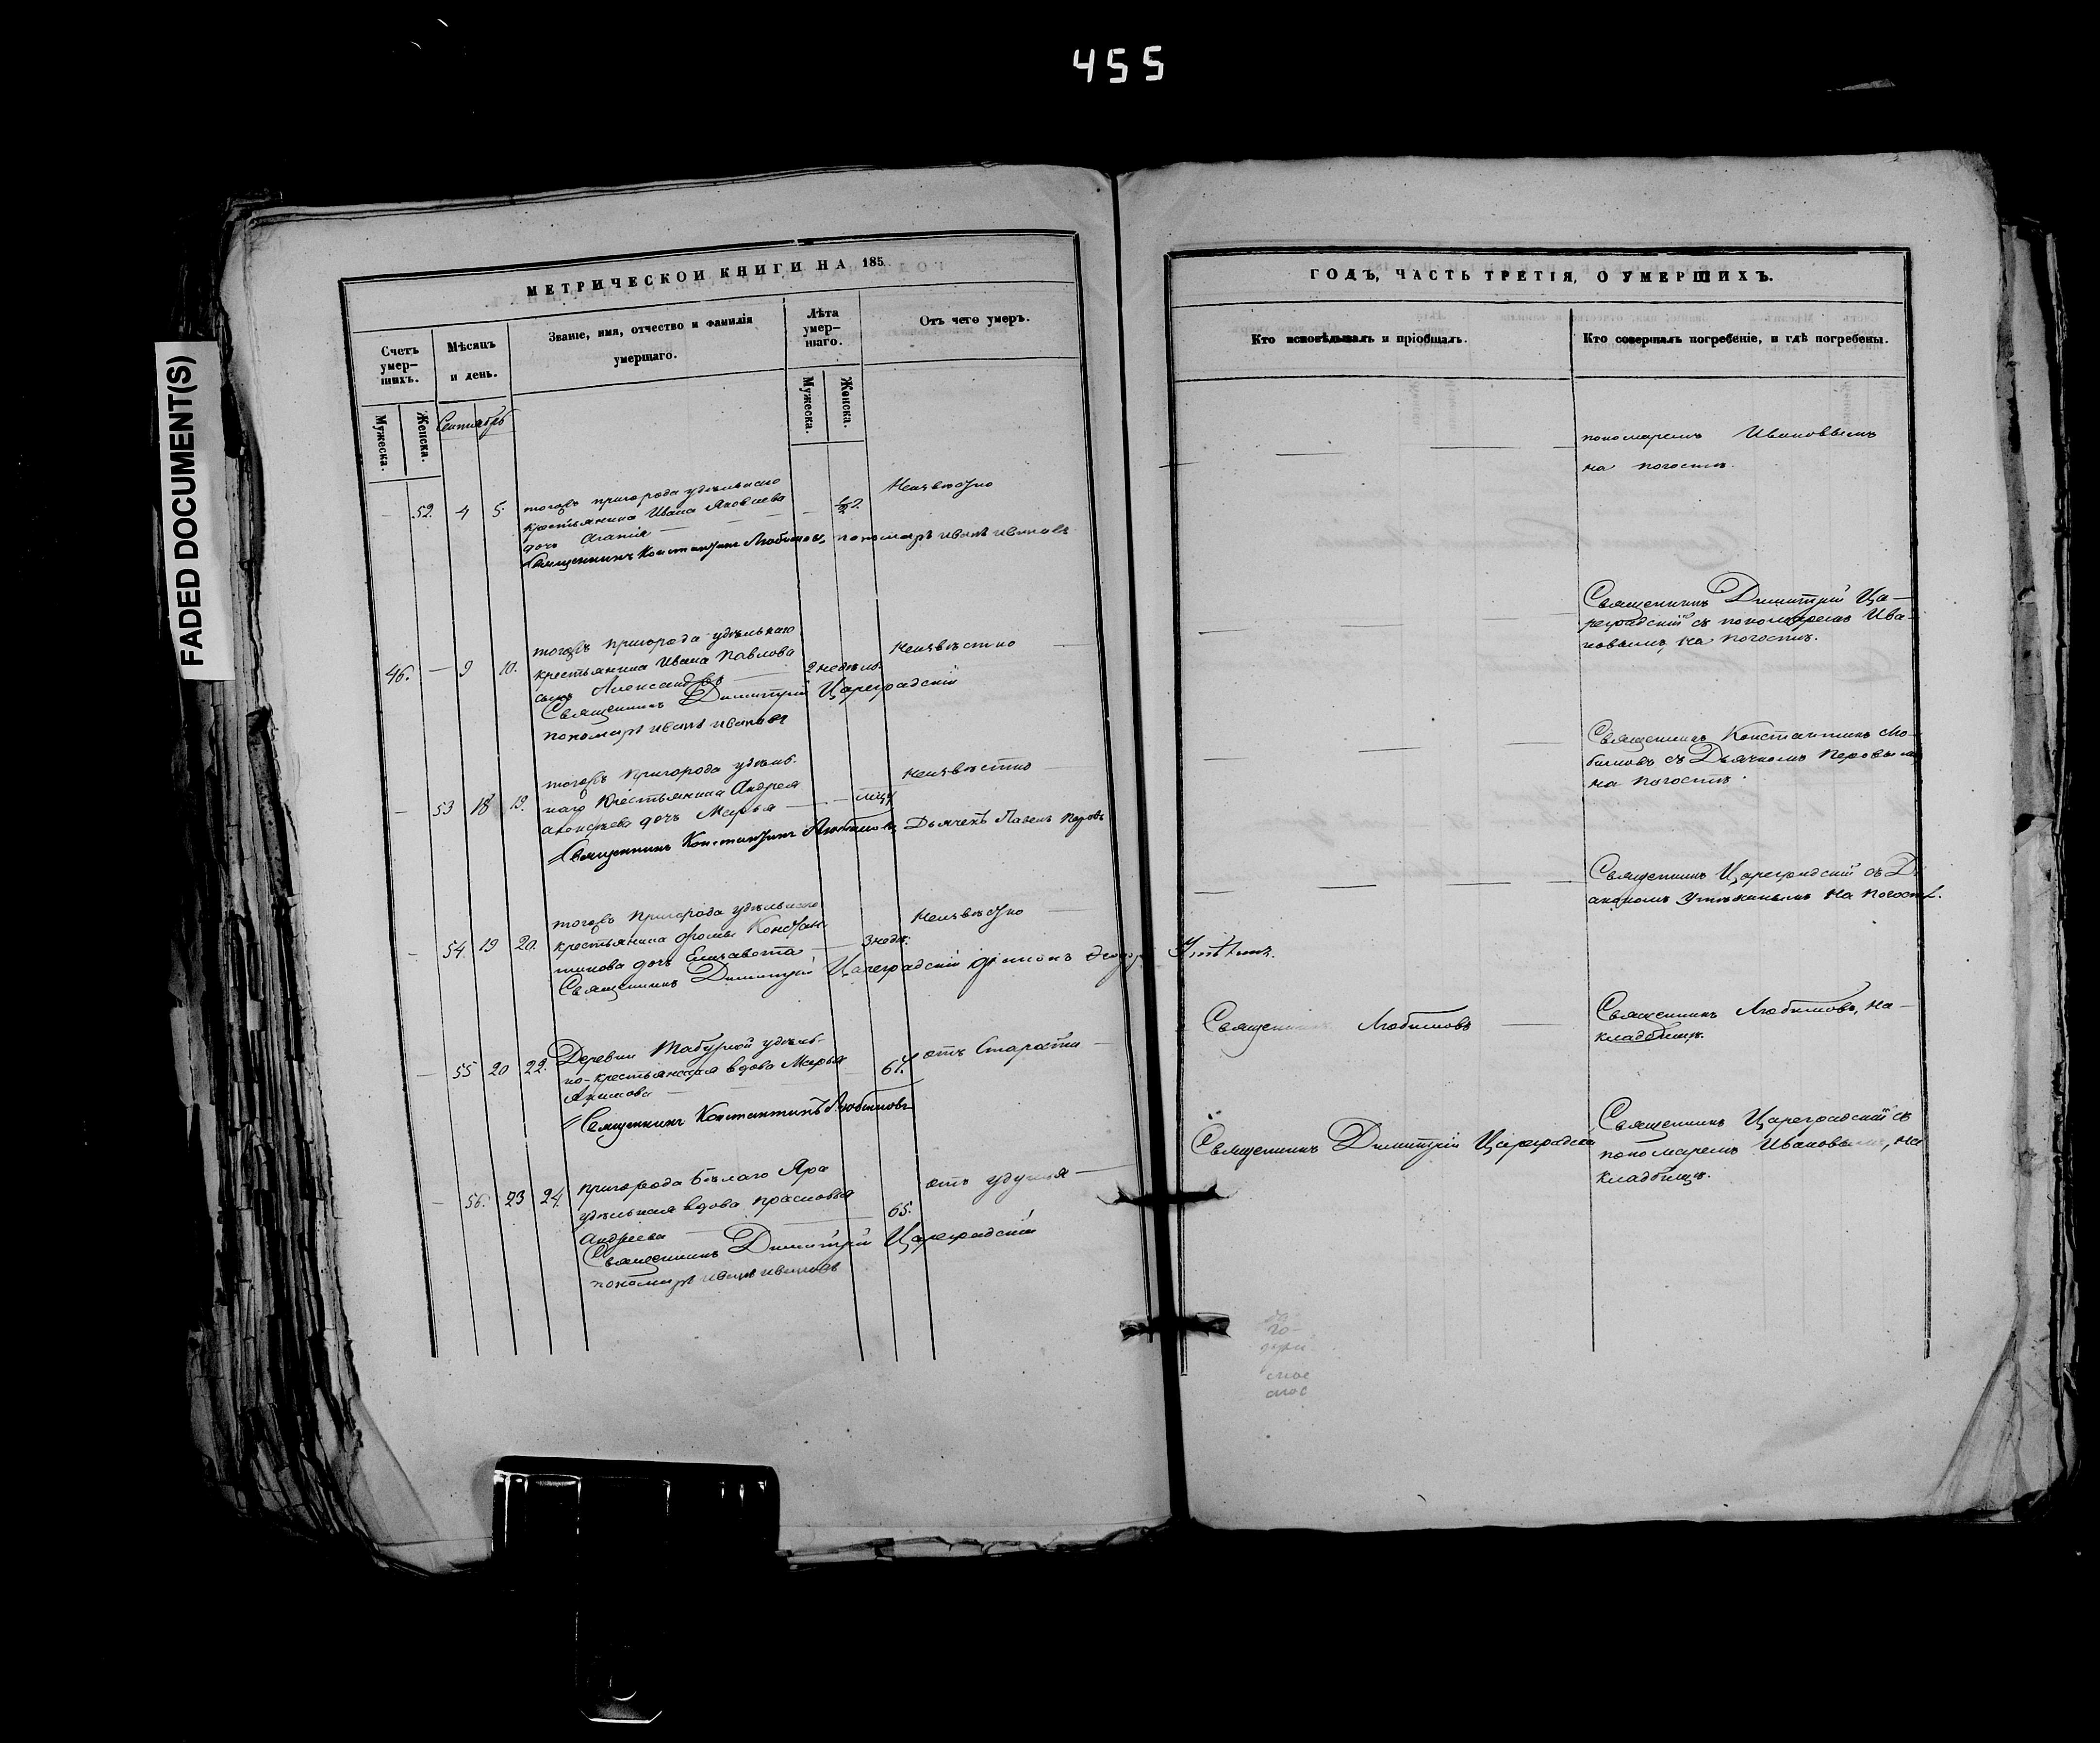 455
FADED DOCUMENT(S)
МЕТРИЧЕСКОЙ КНИГИ НА 185
Счетъ умер-шихъ.
Мѣсяцъ и день.
Званіе, имя, отчество и фамилія умершаго.
Лѣта умер-шаго.
Отъ чего умеръ.
Мужеска.
Женска.
Мужеска.
Женска.
Сентябрь
52. 4 5. тогожъ пригорода удѣльнаго Неизвѣстно
крестьянина Ивана Яковлева
дочь Агапія
Священникъ Константинъ Любимовъ, пономарь иванъ ивановъ
тогожъ пригорода удѣльнаго
46. — 9 10. крестьянина Ивана Павлова 2 недѣль. Неизвѣстно
сынъ Александръ
Священникъ Димитрій Цареградскій
пономарь иванъ ивановъ
тогожъ пригорода удѣль- Неизвѣстно
— 53 18 19. наго крестьянина Андрея
дочь Марья
Священникъ Константинъ Любимовъ, Дьячекъ Павелъ Перовъ
тогожъ пригорода удѣльнаго Неизвѣстно
— 54. 19 20. крестьянина Фомы Констан- 3 недѣ.
тинова дочь Елизавета
Священникъ Димитрій Цареградскій діаконъ Утѣкинъ.
— 55 20 22. Деревни удѣль- отъ Старости
но-крестьянская вдова Марья
Акимова
Священникъ Константинъ Любимовъ
— 56. 23 24. пригорода Бѣлаго Яра отъ удушья
удѣльная вдова Прасковья 65.
Андреева
Священникъ Димитрій Цареградскій
пономарь иванъ ивановъ
ГОДЪ, ЧАСТЬ ТРЕТІЯ, О УМЕРШИХЪ.
Кто исповѣдывалъ и пріобщалъ.
Кто совершалъ погребеніе, и гдѣ погребены.
пономаремъ Ивановымъ
на погостѣ.
Священникъ Димитрій Ца-
реградскій съ пономаремъ Ива-
новымъ, на погостѣ.
Священникъ Константинъ Лю-
бимовъ съ Дьячкомъ Перовымъ
на погостѣ.
Священникъ Цареградскій съ Ді
акономъ Утѣкинымъ на погостѣ.
Священникъ Любимовъ
Священникъ Любимовъ, на
кладбищѣ.
Священникъ Димитрій Цареградскій
Священникъ Цареградскій съ
пономаремъ Ивановымъ, на
кладбищѣ.